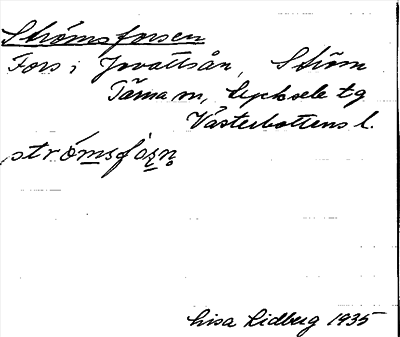 Strömsforsen
Fors i Jovattsån, Ström
Tärna sn, Lycksele tg
Västerbottens l.
strömsfós̱ṉ
Lisa Lidberg 1935